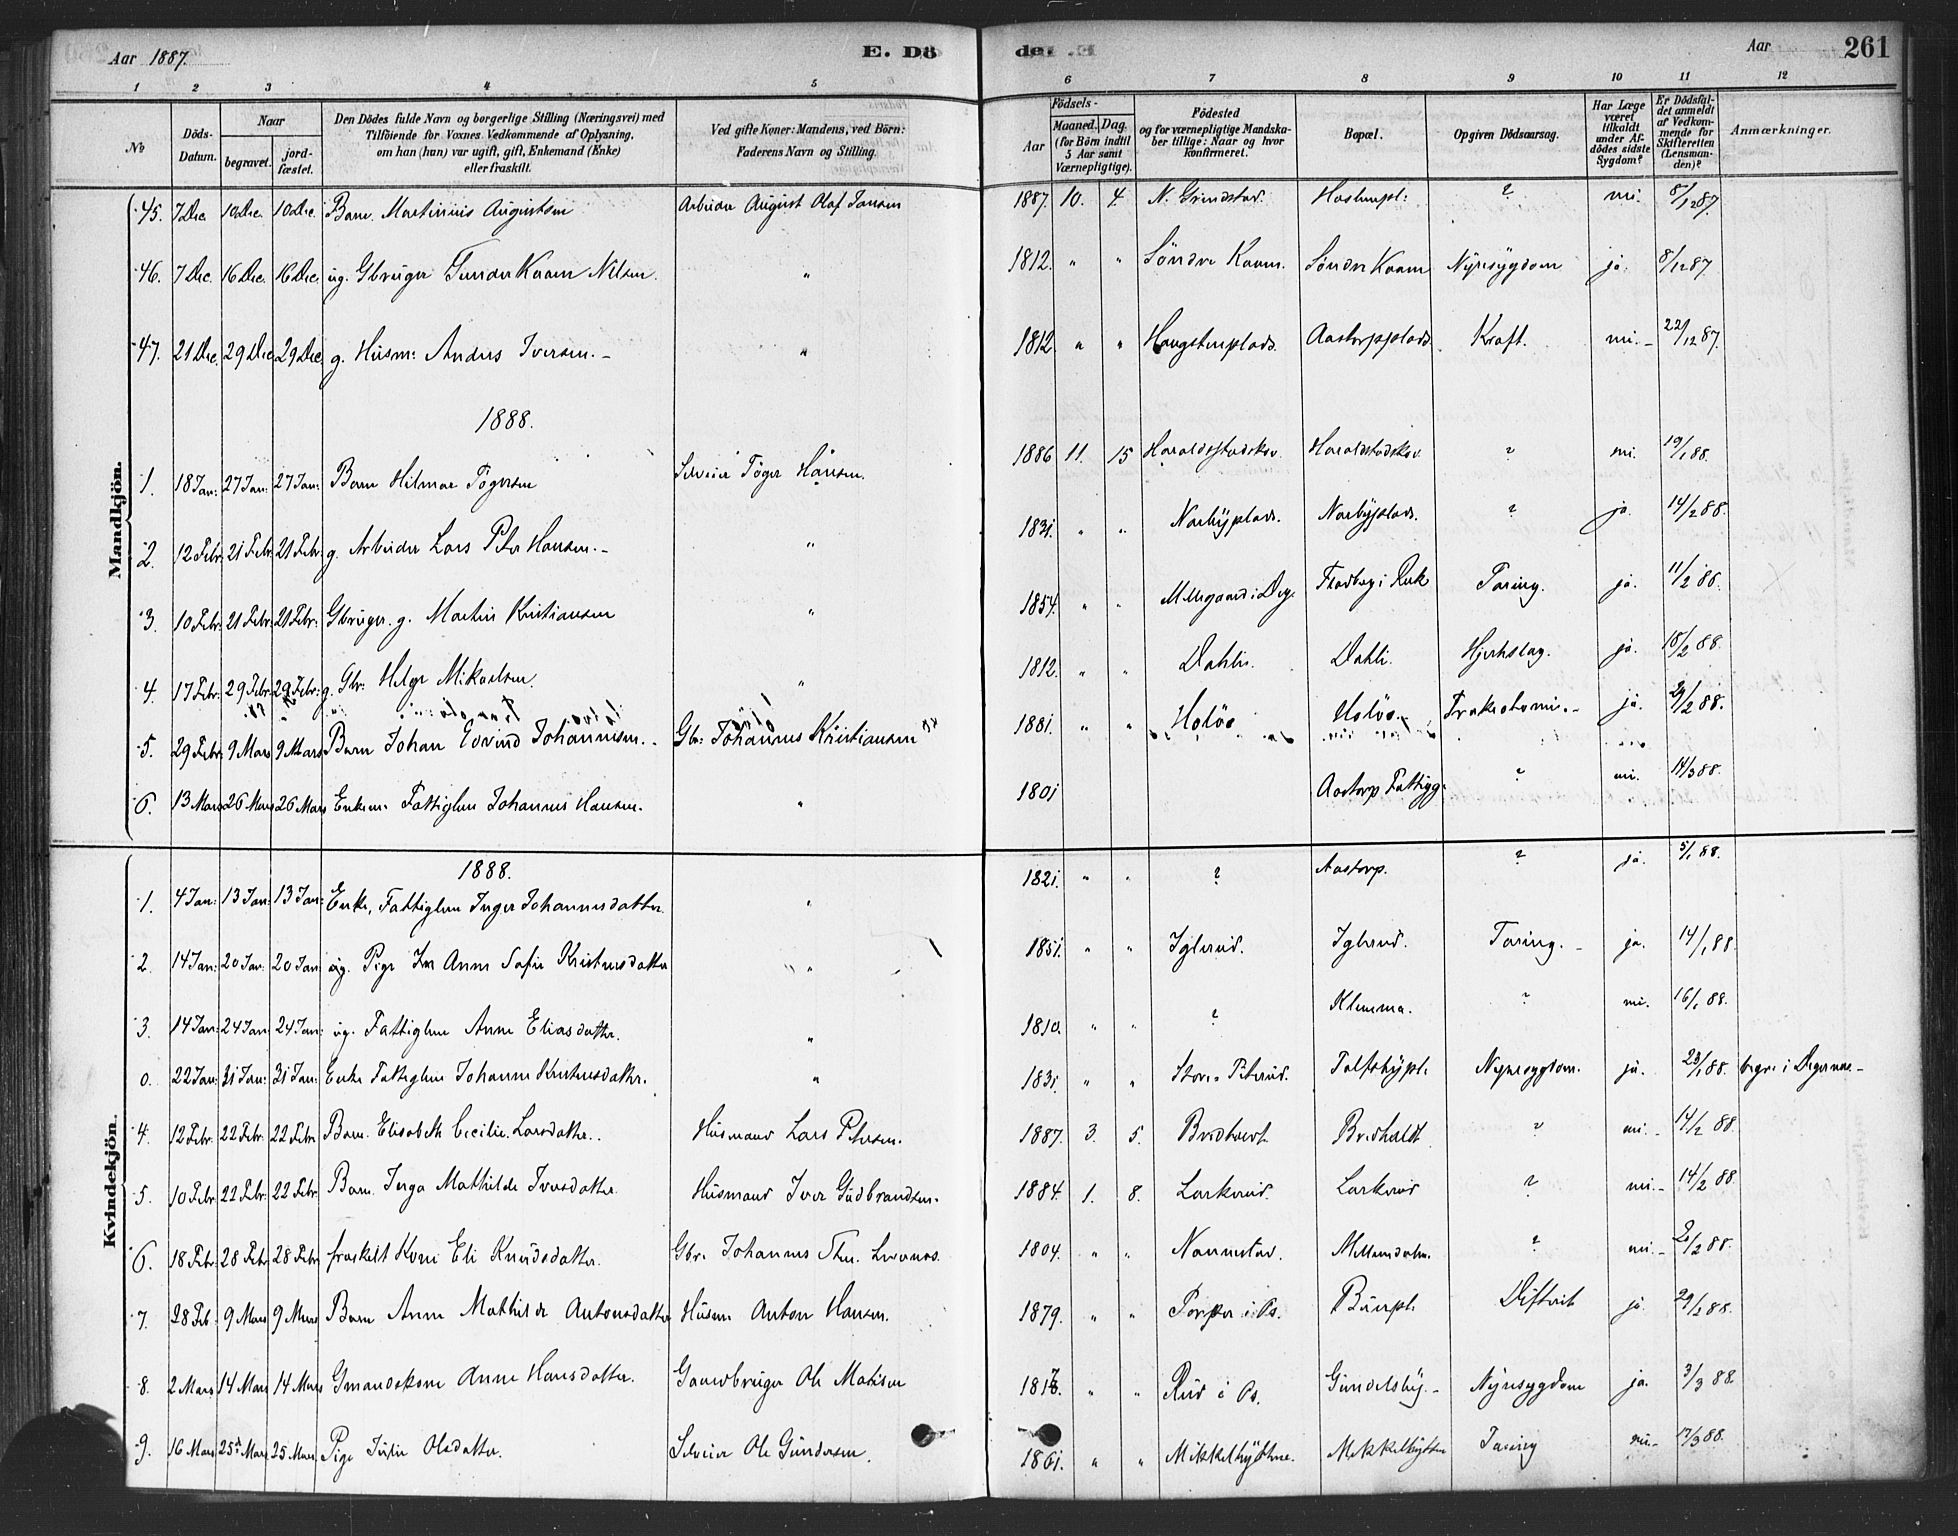 Aar 1887. E. Dö de: Aar 261
1 2 3 4 5 6 7 8 9 10 11 12
No
Döds-Datum.
Naar
begravet.
jordfæstet.
Den Dödes fulde Navn og borgerlige Stilling (Næringsvei) med
Tilföiende for Voxnes Vedkommende af Oplysning,
om han (hun) var ugift, gift, Enkemand (Enke)
eller fraskilt.
Ved gifte Koner: Mandens, ved Börn:
Faderens Navn og Stilling.
Födsels-
Aar
Maaned. Dag.
(for Börn indtil
5 Aar samt
Værnepligtige).
Födested
og for værnepligtige Mandska-
ber tillige: Naar og hvor
konfirmeret.
Bopæl.
Opgiven Dödsaarsag.
Har Læge
været
tilkaldt
under Af-
dödes sidste
Sygdom?
Er Dödsfal-
det anmeldt
af Vedkom-
mende for
Skifteretten
(Lensman-
den)?
Anmærkninger.
Mandkjön.
45. 7 Dec. 10 Dec. 10 Dec. Barn Martinius Augustsen Arbeider August Olaf Jansen 1887. 10. 4. N. Grindstad. ? 8/12 87.
46. 7 Dec. 16 Dec. 16 Dec. ug. Gbruger Gunder Kaam Nilsen. " 1812. " " Söndre Kaam. Söndre Kaam Nyresygdom ja. 8/12 87.
47. 21 Dec. 29 Dec. 29 Dec. g. Husm: Anders Iversen. " 1812. " " Haugstenplads. Aastorpplads. Kræft. 22/12 87.
1888.
1. 18 Jan: 27 Jan: 27 Jan: Barn Hilmar Tögersen Selveier Töger Hansen. 1886 11. 15 Haraldstadskov Haraldstadskov ? 19/1 88.
2. 12 Febr. 21 Febr. 21 Febr. g. Arbeider Lars Peter Hansen. " 1831. " " Narbyplads. Narbyplads. ? ja. 14/2 88.
3. 10 Febr. 21 Febr. 21 Febr: Gbruger. g. Martin Kristiansen " 1854. " " Tæring. ja. 11/2 88.
4. 17 Febr. 29 Febr. 29 Febr: g. Gbr: Helge Mikaelsen. " 1812. " " Dahli. Dahli. Hjerteslag. ja. 18/2 88.
5. 29 Febr. 9 Mars 9 Mars Barn Johan Edvind Johannesen. Gbr: Johannes Kristiansen 1881. " " Holös Holös ja. 29/2 88.
6. 13 Mars 26 Mars 26 Mars Enkem. Fattiglem Johannes Hansen. " 1801 Aastorp Fattigg. ? 14/3 88.
Kvindekjön.
1888.
1. 4 Jan: 13 Jan: 13 Jan: Enke, Fattiglem Inger Johannesdatter " 1821. " " ? Aastorp. ? ja. 5/1 88.
2. 14 Jan: 20 Jan: 20 Jan ug. Pige Anne Sofie Kristensdatter " 1851. " " Iglerud. Iglerud. Tæring. ja. 14/1 88.
3. 14 Jan: 24 Jan: 24 Jan: ug. Fattiglem Anne Eliasdatter. " 1810. " " ? Klemma. ? 16/1 88.
0. 22 Jan: 31 Jan: 31 Jan: Enke Fattiglem Johanne Kristensdatter. " 1831. " " Store Peterud. Nyresygdom. ja. 23/1 88. begr. i Degernæs
4. 12 Febr. 22 Febr. 22 Febr. Barn Elisabeth Cecilie Larsdatter. Husmand Lars Petersen. 1887. 3. 5. Bredholt. Bredholdt. ? 14/2 88.
5. 10 Febr. 22 Febr. 22 Febr. Barn Inga Mathilde Iversdatter. Husmand Iver Gudbrandsen. 1884. 1. 8. Larkerud. Larkerud ? 14/2 88.
6. 18 Febr. 28 Febr 28 Febr fraskilt Kone Eli Knudsdatter. Gbr. Johannes 1804. " " Nannestad. ?
7. 28 Feb. 9 Mars 9 Mars Barn Anne Mathilde Antonsdatter Husm Anton Hansen. 1879. " " Difterit ja 29/2 88.
8. 2 Mars 14 Mars 14 Mars Gmandskone Anne Hansdatter. Gaardbruger Ole Matisen " " Rud i Os. Gundelsby. Nyresygdom ja. 3/3 88.
9. 16 Mars 25 Mars 25 Mars Pige Julie Olsdatter. Selveier Ole Gundersen. 1861. " " Mikkelhyttene. Mikkelhytten Tæring 17/3 88.